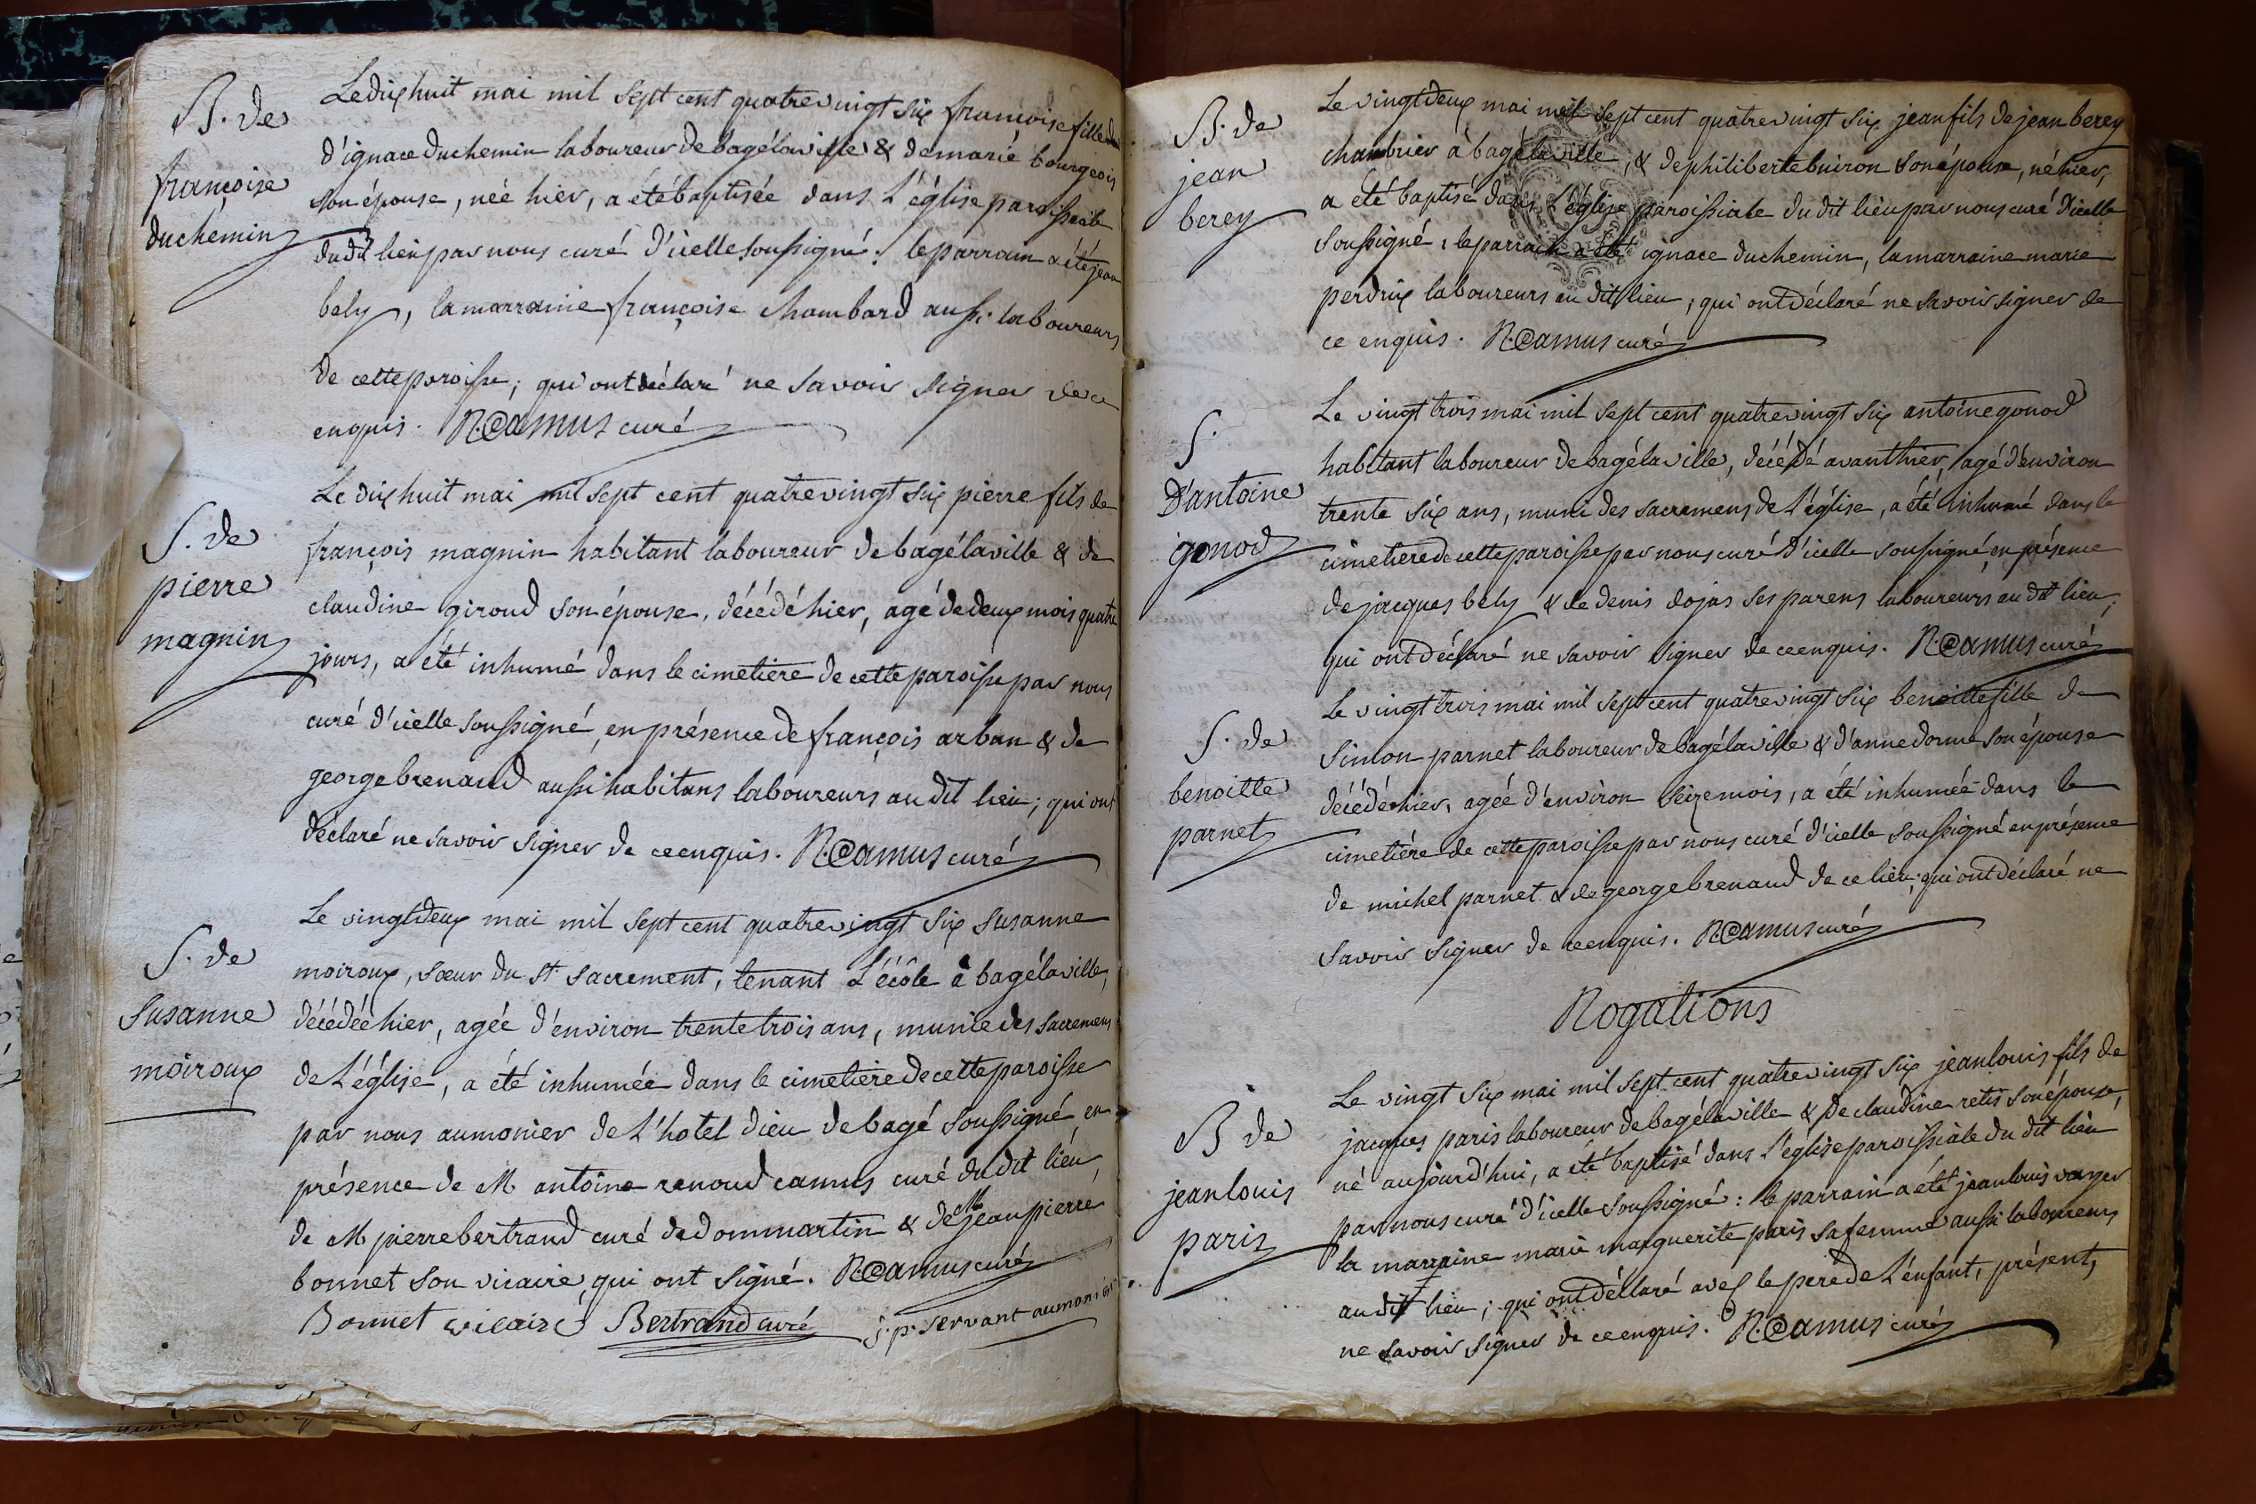 B. de
françoise
duchemin
Le dix huit mai mil sept cent quatrevingt six françoise fille
d'ignace duchemin laboureur de bagélaville & de marie bourgeois
son épouse, née hier, a été baptisée dans L'église paroissiale
du dit lieu par nous curé d'icelle soussigné: le parrain a été jean
bely, la marraine françoise chambard aussi laboureurs
de cette paroisse; qui ont déclaré ne savoir signer de ce
enquis. R.Camus curé
S. de
pierre
magnin
Le dix huit mai mil sept cent quatrevingt six pierre fils de
françois magnin habitant laboureur de bagélaville & de
claudine giroud son épouse, décédé hier, agé de deux mois quatre
jours, a été inhumé dans le cimetiere de cette paroisse par nous
curé d'icelle soussigné, en présence de françois arban & de
george brenaud aussi habitans laboureurs au dit lieu; qui ont
déclaré ne savoir signer de ce enquis. R.Camus curé
S. de
Susanne
moiroux
Le vingt deux mai mil sept cent quatrevingt six susanne
moiroux, sœur du st. sacrement, tenant L'école à bagélaville,
décédée hier, agée d'environ trente trois ans, munie des sacremens
de L'église, a été inhumée dans le cimetiere de cette paroisse
par nous aumonier de L'hotel dieu de bagé soussigné, en
présence de M antoine renoud camus curé du dit lieu,
de M pierre bertrand curé de dommartin & de M jean pierre
bonnet son vicaire, qui ont signé. R.Camus curé
Bonnet vicaire Bertrand curé j. p. servant aumonier
B. de
jean
berey
Le vingt deux mai mil sept cent quatrevingt six jean fils de jean berey
chambrier à bagélaville, & de philiberte buiron son épouse, né hier,
a été baptisé dans L'église paroissiale du dit lieu par nous curé d'icelle
soussigné, le parrain a été ignace duchemin, la marraine marie
perdrix laboureurs au dit lieu; qui ont déclaré ne savoir signer de
ce enquis. R.Camus curé
S.
D'antoine
gonod
Le vingt trois mai mil sept cent quatrevingt six antoine gonod
habitant laboureur de bagélaville, décédé avant hier, agé d'environ
trente six ans, muni des sacremens de L'église, a été inhumé dans le
cimetiere de cette paroisse par nous curé d'icelle soussigné, en présence
de jacques bely & de denis dojas ses parens laboureurs au dit lieu;
qui ont déclaré ne savoir signer de ce enquis. R.Camus curé
S. de
benoitte
parnet
Le vingt trois mai mil sept cent quatrevingt six benoitte fille de
Simon parnet laboureur de bagélaville & d'anne donne son épouse
décédée hier, agée d'environ seize mois, a été inhumée dans le
cimetiére de cette paroisse par nous curé d'icelle soussigné en présence
de michel parnet & de george brenaud de ce lieu; qui ont déclaré ne
savoir signer de ce enquis. R.Camus curé
Rogations
B de
jean louis
paris
Le vingt six mai mil sept cent quatrevingt six jean louis fils de
jacques paris laboureur de bagélaville & de claudine retis son épouse,
né aujourd'hui, a été baptisé dans L'église paroissiale du dit lieu
par nous curé d'icelle soussigné: le parrain a été jean louis voyer
la marraine marie marguerite paris sa femme aussi laboureurs
au dit lieu; qui ont déclaré avec le pere de L'enfant, présent,
ne savoir signer de ce enquis. R.Camus curé